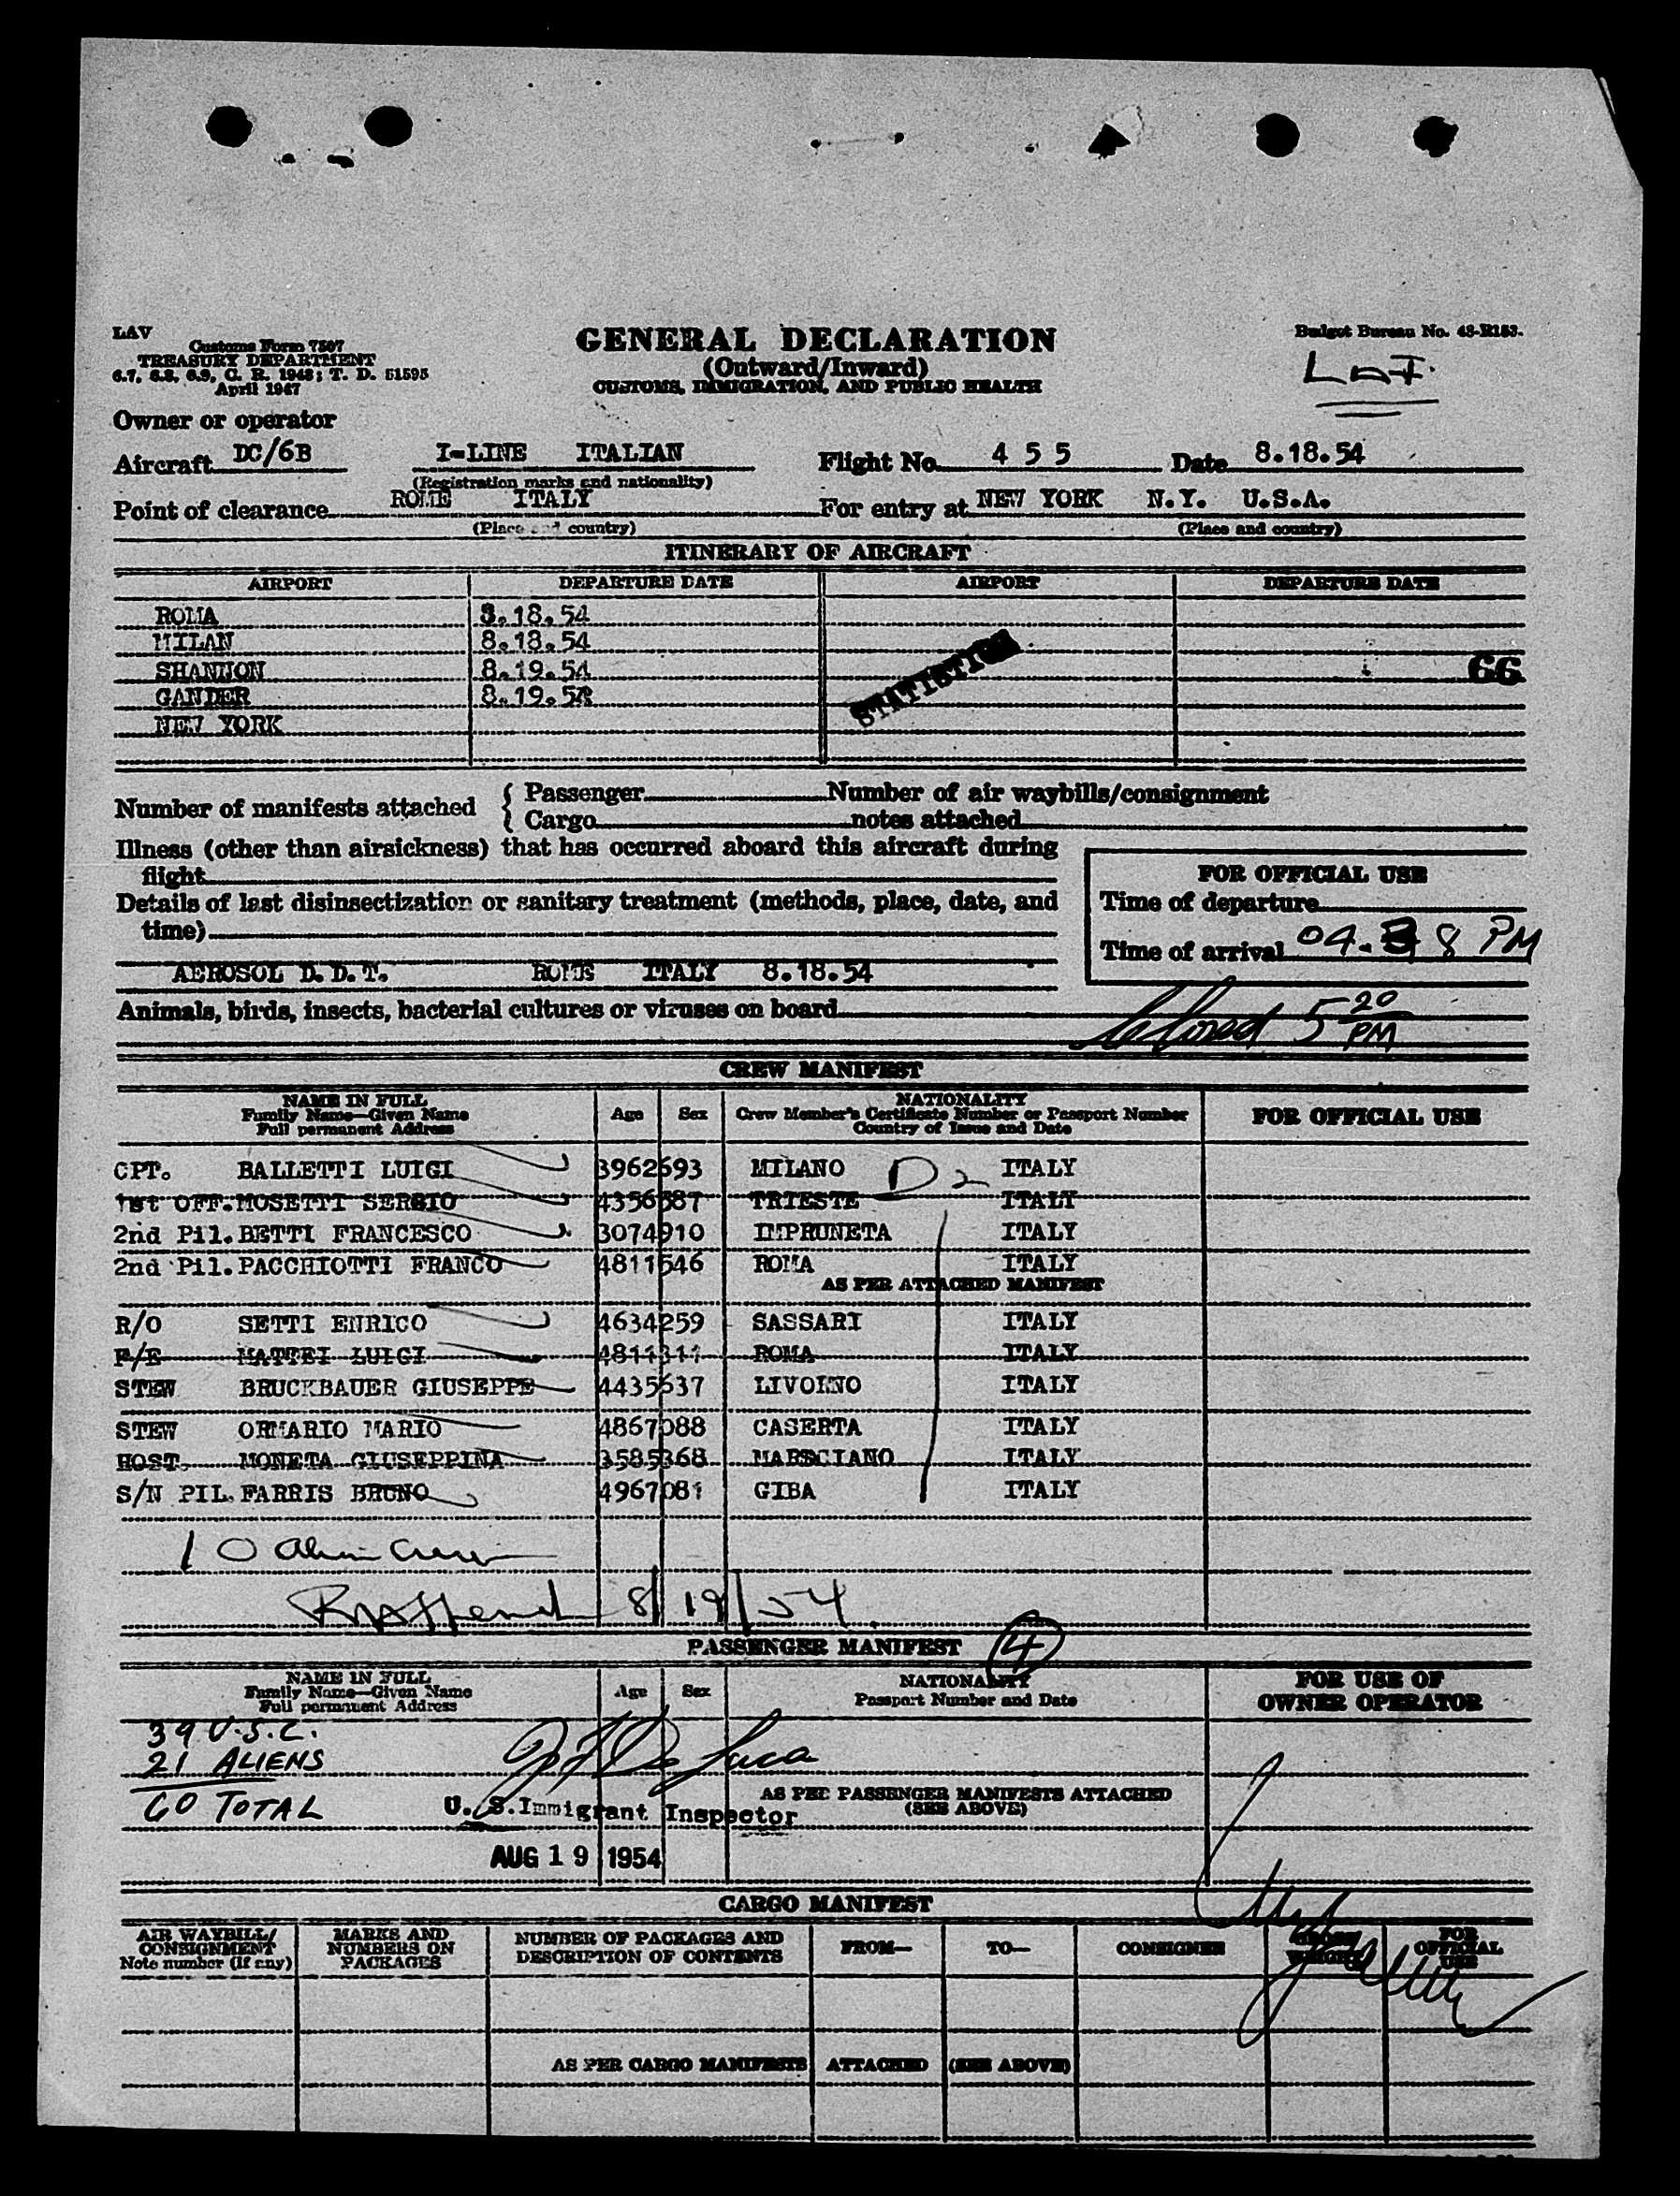 LAV
Customs Form 7507
TREASURY DEPARTMENT
6.7, 6.8, 6.9, C. R. 1943; T. D. 51595
April 1947
GENERAL DECLARATION
(Outward/Inward)
CUSTOMS, IMMIGRATION, AND PUBLIC HEALTH
Budget Bureau No. 48-R153.
L.A.I.
Owner or operator
Aircraft DC/6B I-LINE ITALIAN Flight No. 4 5 5 Date 8.18.54
(Registration marks and nationality)
Point of clearance ROME ITALY For entry at NEW YORK N.Y. U.S.A.
(Place and country) (Place and country)
ITINERARY OF AIRCRAFT
AIRPORT DEPARTURE DATE AIRPORT DEPARTURE DATE
ROMA 8.18.54
MILAN 8.18.54
SHANNON 8.19.54
GANDER 8.19.54
NEW YORK
STATISTICS
66
Number of manifests attached { Passenger Number of air waybills/consignment
{ Cargo notes attached
Illness (other than airsickness) that has occurred aboard this aircraft during
flight
Details of last disinsectization or sanitary treatment (methods, place, date, and
time)
AEROSOL D.D.T. ROME ITALY 8.18.54
FOR OFFICIAL USE
Time of departure
Time of arrival 04.38 PM
Animals, birds, insects, bacterial cultures or viruses on board
5 20 PM
CREW MANIFEST
NAME IN FULL
Family Name—Given Name
Full permanent Address
Age Sex
NATIONALITY
Crew Member's Certificate Number or Passport Number
Country of Issue and Date
FOR OFFICIAL USE
CPT. BALLETTI LUIGI 3962693 MILANO D2 ITALY
1st OFF. MOSETTI SERGIO 4356887 TRIESTE ITALY
2nd Pil. BETTI FRANCESCO 3074910 IMPRUNETA ITALY
2nd Pil. PACCHIOTTI FRANCO 4811646 ROMA ITALY
AS PER ATTACHED MANIFEST
R/O SETTI ENRICO 4634259 SASSARI ITALY
F/E MATTEI LUIGI 4811311 ROMA ITALY
STEW BRUCKBAUER GIUSEPPE 4435637 LIVORNO ITALY
STEW ORMARIO MARIO 4867088 CASERTA ITALY
HOST. MONETA GIUSEPPINA 3585368 MARSCIANO ITALY
S/N PIL. FARRIS BRUNO 4967081 GIBA ITALY
10 alien crew
8/19/54
PASSENGER MANIFEST 4
NAME IN FULL
Family Name—Given Name
Full permanent Address
Age Sex
NATIONALITY
Passport Number and Date
FOR USE OF
OWNER OPERATOR
39 U.S.C.
21 ALIENS
60 TOTAL
AS PER PASSENGER MANIFESTS ATTACHED
(SEE ABOVE)
U. S. Immigrant Inspector
AUG 19 1954
CARGO MANIFEST
AIR WAYBILL/
CONSIGNMENT
Note number (If any)
MARKS AND
NUMBERS ON
PACKAGES
NUMBER OF PACKAGES AND
DESCRIPTION OF CONTENTS
FROM—
TO—
CONSIGNEE
GROSS
WEIGHT
FOR
OFFICIAL
USE
AS PER CARGO MANIFESTS ATTACHED (SEE ABOVE)